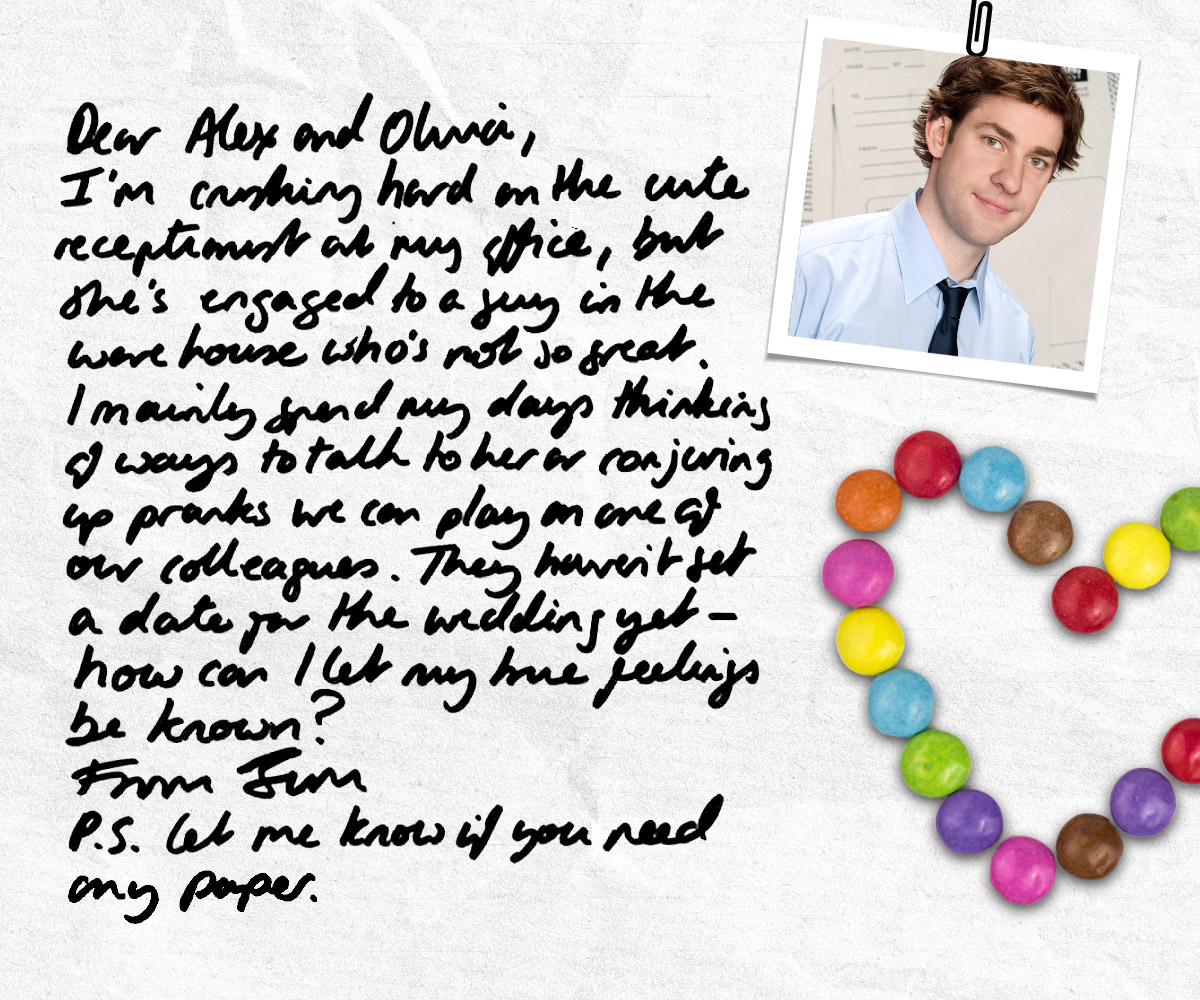 Dear Alex and Olivia,
I'm crushing hard on the cute
receptionist at my office, but
she's engaged to a guy in the
warehouse who's not so great.
I mainly spend my days thinking
of ways to talk to her or conjuring
up pranks we can play on one of
our colleagues. They haven't set
a date for the wedding yet –
how can I let my true feelings
be known?
From Jim
P.S. Let me know if you need
any paper.